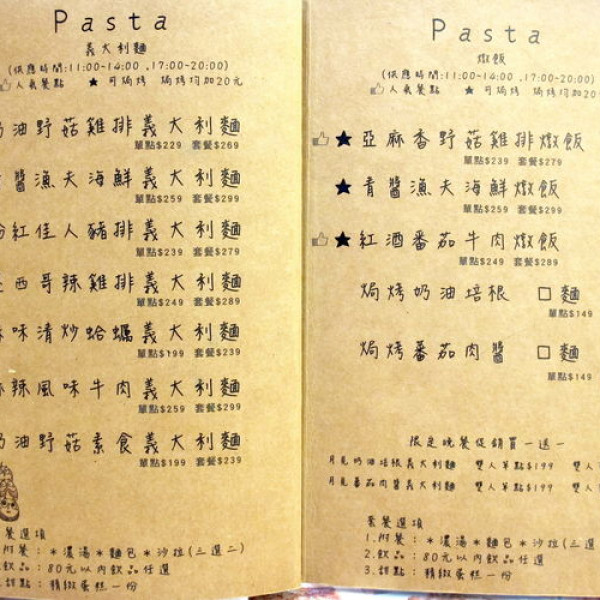 Pasta
義大利麵
(供應時間:11:00-14:00 .17:00-20:00)
人氣餐點 ★可焗烤 焗烤均加20元
奶油野菇雞排義大利麵
單點$229 套餐$269
醬漁夫海鮮義大利麵
單點$259 套餐$299
紅佳人豬排義大利麵
單點$239 套餐$279
西哥辣雞排義大利麵
單點$249 套餐$289
味清炒蛤蠣義大利麵
單點$199 套餐$239
辣風味牛肉義大利麵
單點$259 套餐$299
奶油野菇素食義大利麵
單點$199 套餐$239
餐選項
.附餐:*濃湯*麵包*沙拉(三選二)
.飲品:80元以內飲品任選
.甜點:精緻蛋糕一份
Pasta
燉飯
(供應時間:11:00-14:00 .17:00-20:00)
人氣餐點 ★可焗烤 焗烤均加20
★亞麻香野菇雞排燉飯
單點$239 套餐$279
★青醬漁夫海鮮燉飯
單點$259 套餐$299
★紅酒番茄牛肉燉飯
單點$249 套餐$289
焗烤奶油培根 □麵
單點$149
焗烤番茄肉醬 □麵
單點$149
限定晚餐促銷買一送一
月見奶油培根義大利麵 雙人單點$199 雙
月見番茄肉醬義大利麵 雙人單點$199 雙
套餐選項
1.附餐:*濃湯*麵包*沙拉(三
2.飲品:80元以內飲品任選
3.甜點:精緻蛋糕一份